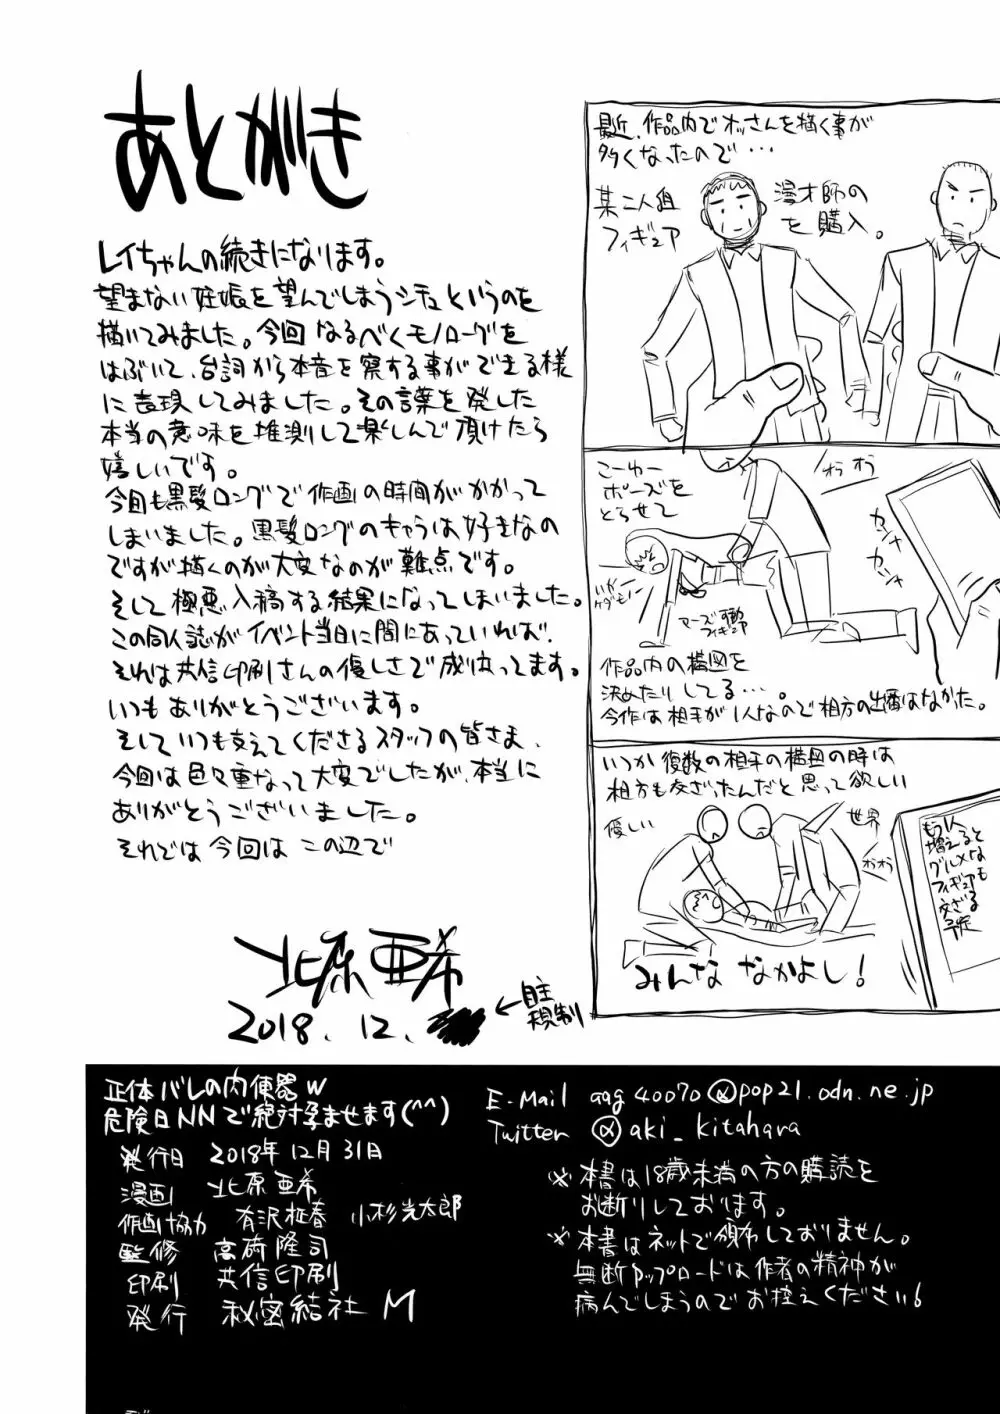 あとがき
レイちゃんの続きになります。
望まない妊娠を望んでしまうシチュというのを
描いてみました。今回なるべくモノローグを
はぶいて、台詞から本音を察する事ができる様
に表現してみました。その言葉を発した
本当の意味を推測して楽しんで頂けたら
嬉しいです。
今回も黒髪ロングで作画の時間がかかって
しまいました。黒髪ロングのキャラは好きなの
ですが描くのが大変なのが難点です。
そして極悪入稿する結果になってしまいました。
この同人誌がイベント当日に間にあっていれば、
それは共信印刷さんの優しさで成り立ってます。
いつもありがとうございます。
そしていつも支えてくださるスタッフの皆さま、
今回は色々重なって大変でしたが、本当に
ありがとうございました。
それでは今回はこの辺で
北原亜希
2018.12.
←自主
規制
最近、作品内でオッさんを描く事が
多くなったので…
某二人組
漫才師の
フィギュア
を購入。
こーゆー
ポーズを
とらせて
オラオラ
カシャ
カシャ
いやー
ケダモノー
可動
フィギュア
作品内の構図を
決めたりしてる…。
今作は相手が1人なので相方の出番はなかった。
いつか複数の相手の構図の時は
相方も交ざったんだと思って欲しい
優しい
世界
オラオラ
もう1人
増えると
グルメな
フィギュアも
交ざる
予定
みんななかよし!
正体バレの肉便器w
危険日NNで絶対孕ませます(^^)
発行日 2018年12月31日
漫画 北原亜希
作画協力 有沢柾春 小杉光太郎
監修 高荷隆司
印刷 共信印刷
発行 秘密結社M
E-Mail aqg40070@pop21.odn.ne.jp
Twitter @aki_kitahara
※本書は18歳未満の方の購読を
お断りしております。
※本書はネットで頒布しておりません。
無断アップロードは作者の精神が
病んでしまうのでお控えください!